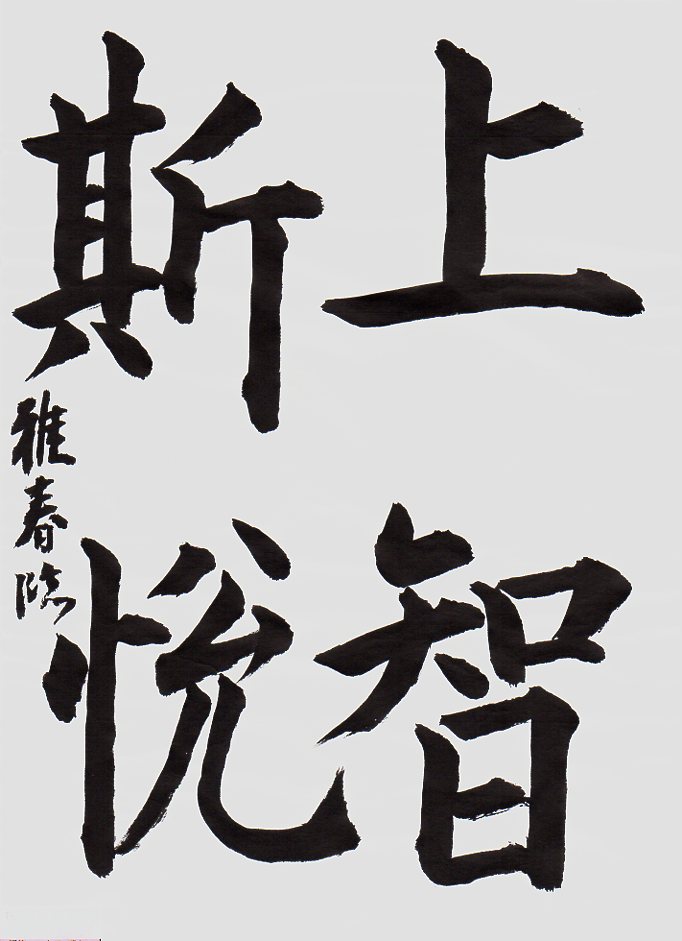 上智
斯悦
雅春臨